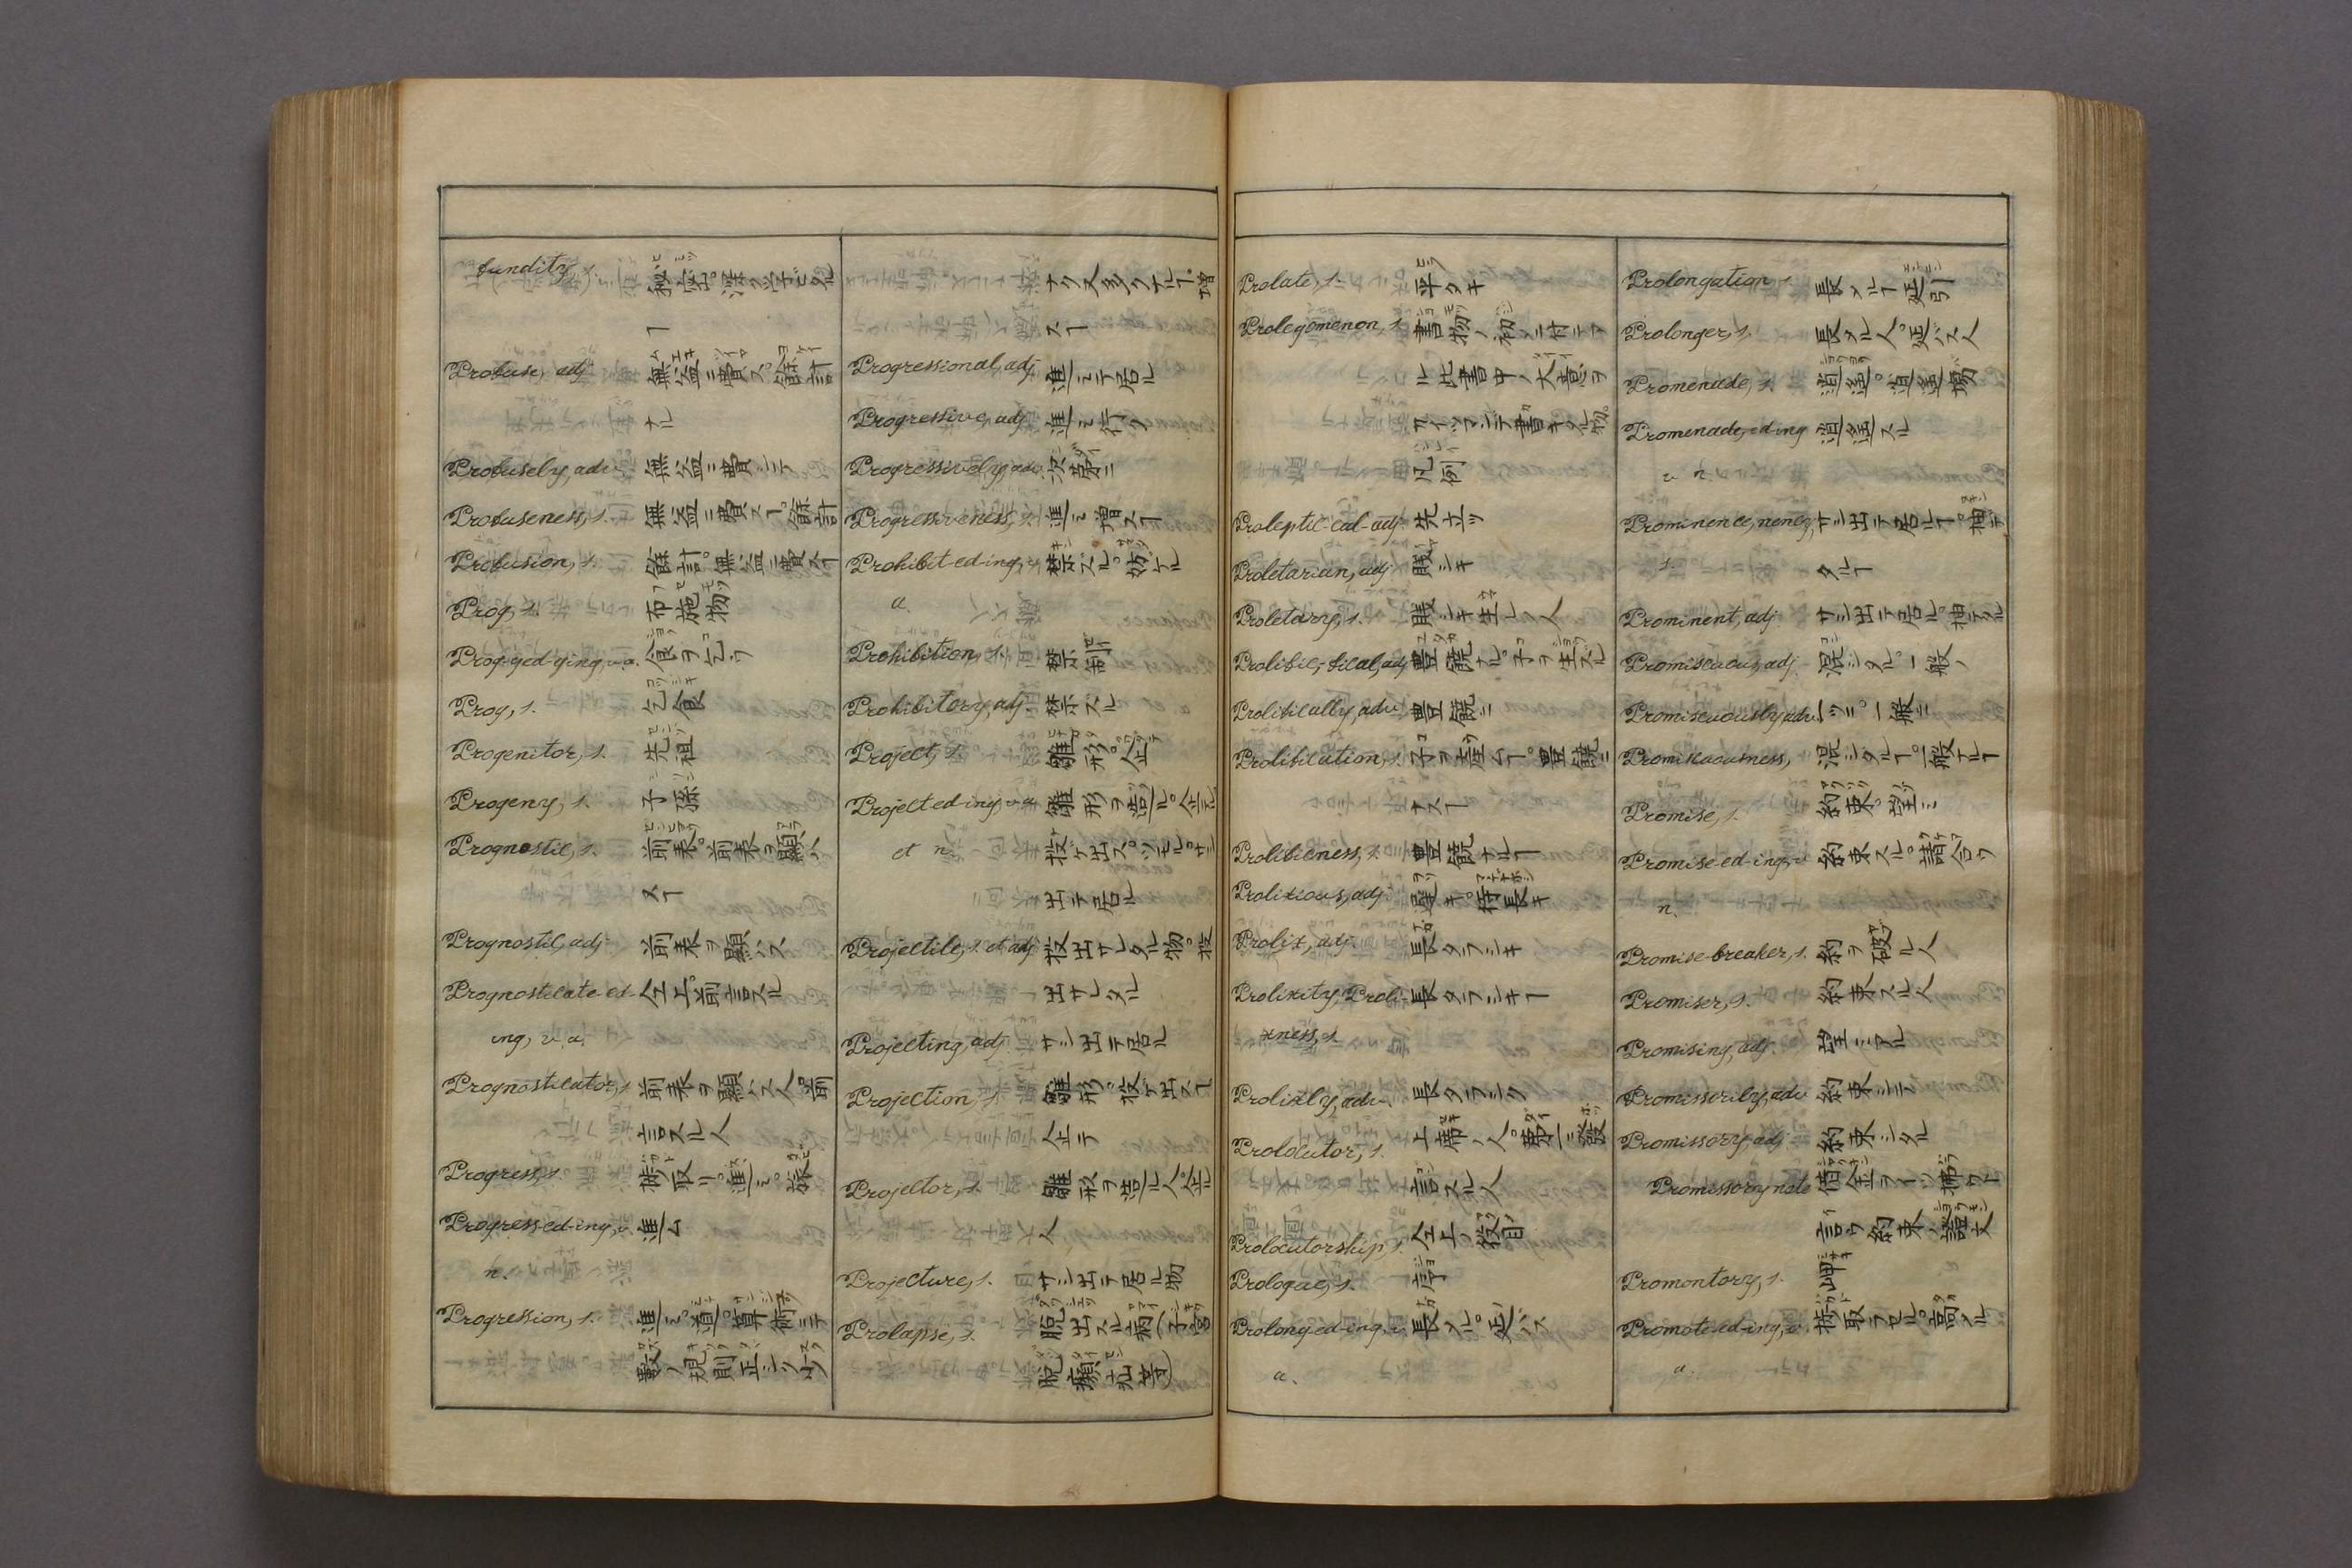 fundity, s. 秘密。深ク学ビタル
ヿ
Profuse, adj. 無益ニ費ス。餘計
ナル
Profusely, adv. 無益ニ費シテ
Profuseness, s. 無益ニ費スヿ。餘計
Profusion, s. 餘計。無益ニ費スヿ
Prog, s. 布施物
Prog-ged-ging, v. a. 食ヲ乞ウ
Prog, s. 乞食
Progenitor, s. 先祖
Progeny, s. 子孫
Prognostic, s. 前表。前表ヲ顕ハ
スヿ
Prognostic, adj. 前表ヲ顕ハス
Prognosticate-ed- 仝上。前言スル
ing, v. a.
Prognosticator, s. 前表ヲ顕ハス人。前
言スル人
Progress, s. 捗取リ。進ミ。旅
Progress-ed-ing, v. 進ム
n.
Progression, s. 進ミ。道。算術ニテ
數ノ規則正シク少
ナクス多クナルヿ。増
スヿ
Progressional, adj. 進ミテ居ル
Progressive, adj. 進ミ行ク
Progressively, adv. 次第ニ
Progressiveness, s. 進ミ増スヿ
Prohibit-ed-ing, v. 禁ズル。妨ケル
a.
Prohibition, s. 禁制
Prohibitory, adj. 禁ズル
Project, s. 雛形。企
Project-ed-ing, v. a. 雛形ヲ造ル。企テル
et n. 投ケ出ス。ツモル。サシ
出テ居ル
Projectile, s. et adj. 投出サレタル物。投
出サレタル
Projecting, adj. サシ出テ居ル
Projection, s. 雛形。投ケ出スヿ
企テ
Projector, s. 雛形ヲ造ル人。企ル
人
Projecture, s. サシ出テ居ル物
Prolapse, s. 脱出スル病(子宮
脱癩疝等)
Prolate, s. 平タキ
Prolegomenon, s. 書物ノ初メニ付テア
ル此書中ノ大意ヲ
カイツマンデ書キタル物。
凡例
Proleptic-cal-adj. 先立ツ
Proletarian, adj. 賤シキ
Proletary, s. 賤シキ生レノ人
Prolific,-fical, adj. 豊饒ナル。子ヲ生ズル
Prolifically, adv. 豊饒ニ
Prolification, s. 子ヲ産ムヿ。豊饒ニ
ナスヿ
Prolificness, s. 豊饒ナルヿ
Prolixious, adj. 遅キ。待長キ
Prolix, adj. 長タラシキ
Prolixity, Proli- 長タラシキヿ
xness, s.
Prolixly, adv. 長タラシク
Prolocutor, s. 上席ノ人。第一ニ發
言スル人
Prolocutorship, s. 仝上ノ役目
Prologue, s. 序
Prolong-ed-ing, v. 長メル。延バス
a.
Prolongation, s. 長メルヿ。延引
Prolonger, s. 長メル人。延バス人
Promenade, s. 逍遥。逍遥塲
Promenade,-ed-ing 逍遥スル
v. n.
Prominence, nency, サシ出テ居ルヿ。抽テ
s. タルヿ
Prominent, adj. サシ出テ居ル。抽テタル
Promiscuous, adj. 混シタル。一般ノ
Promiscuously, adv. 一ツニ。一般ニ
Promiscuousness, 混シタルヿ。一般ナルヿ
Promise, s. 約束。望ミ
Promise-ed-ing, v. 約束スル。請合ウ
n.
Promise-breaker, s. 約ヲ破ル人
Promiser, s. 約束スル人
Promising, adj. 望ミアル
Promissorily, adv. 約束シテ
Promissory, adj. 約束シタル
Promissory note 借金ヲイツ拂ウト
言ウ約束ノ證文
Promontory, s. 岬
Promote-ed-ing, v. 捗取ラセル。高メル
a.